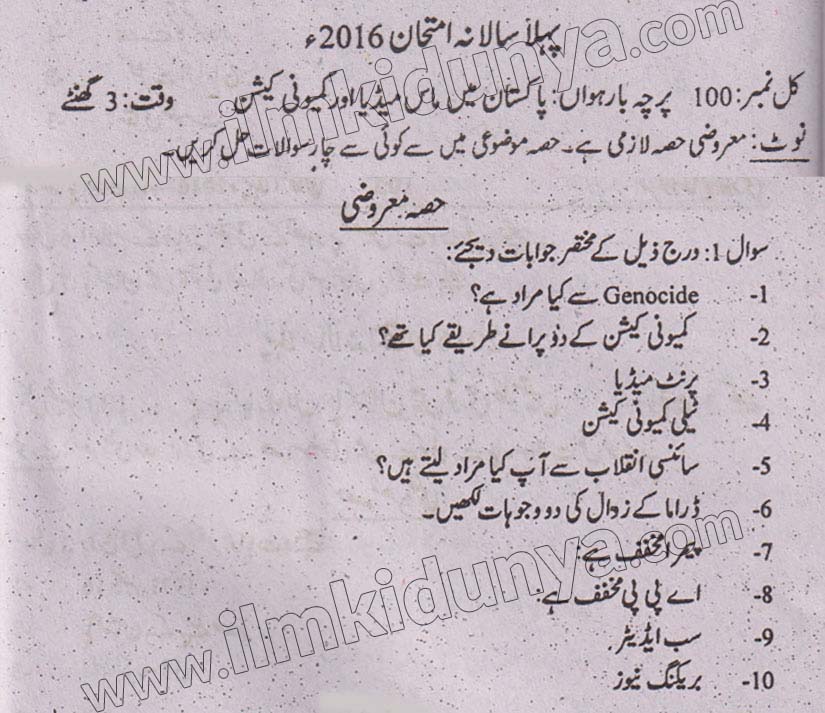 پہلا سالانہ امتحان 2016ء
کل نمبر: 100 پرچہ بارھواں: پاکستان میں ماس میڈیا اور کمیونی کیشن وقت: 3 گھنٹے
نوٹ: معروضی حصہ لازمی ہے۔ حصہ موضوعی میں سے کوئی سے چار سوالات حل کریں۔
حصہ معروضی
سوال 1: درج ذیل کے مختصر جوابات دیجئے:
1- Genocide سے کیا مراد ہے؟
2- کمیونی کیشن کے دو پرانے طریقے کیا تھے؟
3- پرنٹ میڈیا
4- ٹیلی کمیونی کیشن
5- سائنسی انقلاب سے آپ کیا مراد لیتے ہیں؟
6- ڈراما کے زوال کی دو وجوہات لکھیں۔
7- پیمرا مخفف ہے:
8- اے پی پی مخفف ہے:
9- سب ایڈیٹر
10- بریکنگ نیوز
www.ilmkidunya.com
www.ilmkidunya.com